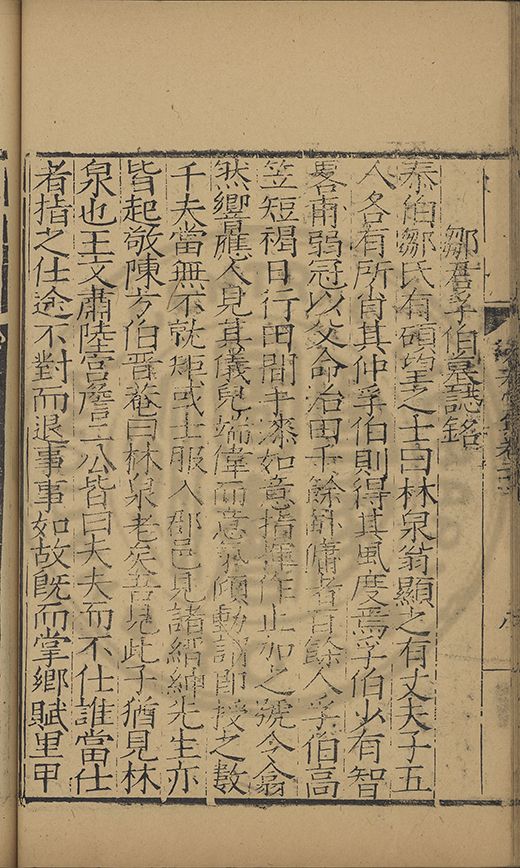 鄒君孚伯墓誌銘
泰伯鄒氏有碩望之士曰林泉翁顯之有丈夫子五
人各有所肖其仲孚伯則得其風度焉孚伯少有智
畧甫弱冠以父命治田千餘畝傭者百餘人孚伯高
笠短褐日行田間手漆如意指揮作止加之號令翕
然響應人見其儀皃端偉而意氣傾動謂即授之數
千夫當無不就矩或士服入郡邑見諸縉紳先生亦
皆起敬陳方伯晋菴曰林泉老矣吾見此子猶見林
泉也王文肅陸宫詹二公皆曰夫夫而不仕誰當仕
者指之仕途不對而退事事如故旣而掌鄉賦里甲
八